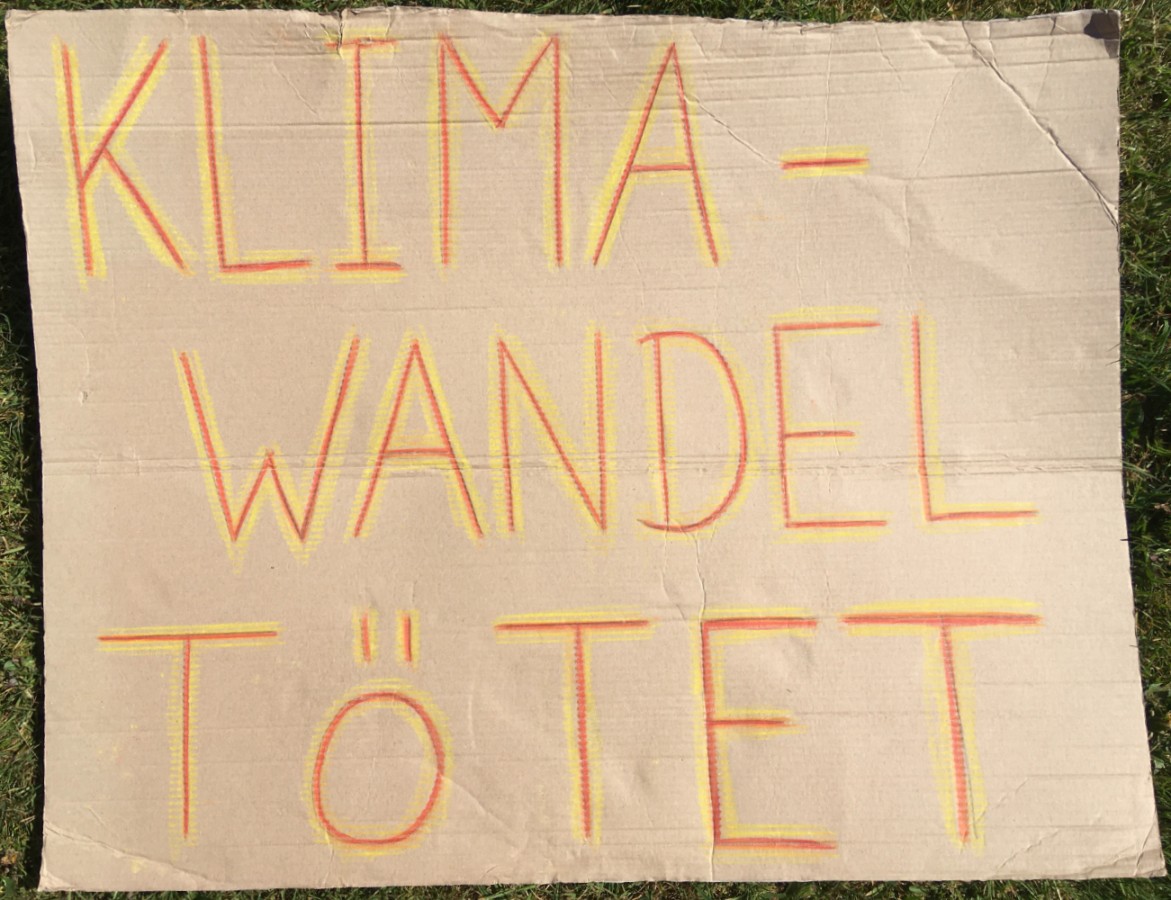 KLIMA-
WANDEL
TÖTET